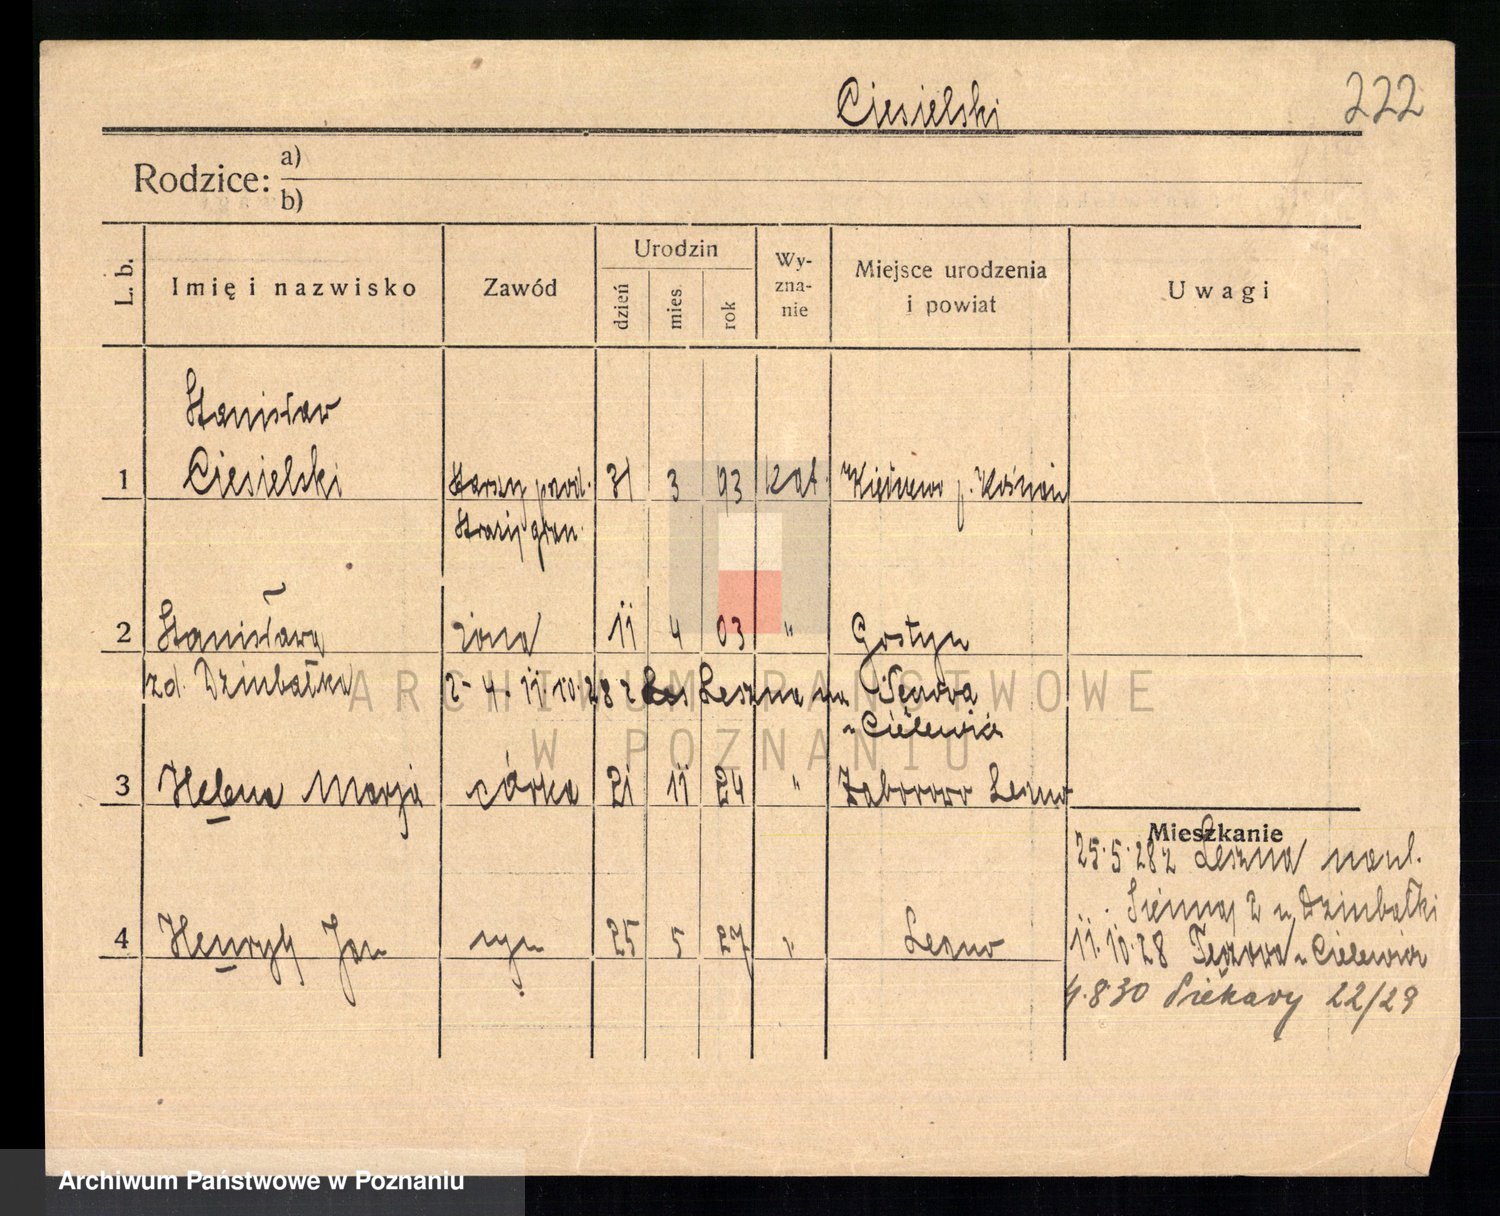 Ciesielski
222
Rodzice: a)
b)
L. b. Imię i nazwisko Zawód Urodzin dzień mies rok Wy-zna-nie Miejsce urodzenia i powiat Uwagi
Stanisław
1 Ciesielski Starszy przod. 31 3 93 kat. p. Kościan
Straży gran.
2 Stanisława żona 11 4 03 " Gostyń
zd. Dziubałka 2-4. 11.10.28 z Leszna na
3 Helena Marja córka 21 11 24 " Zaborowo Leszno
Mieszkanie
25.5.28 z Leszna
Siennej 2 u Dziubałki
4 Henryk Jan syn 25 5 27 " Leszno 11.10.28
4.8.30 Piekary 22/23
ARCHIWUM PAŃSTWOWE
W POZNANIU
Archiwum Państwowe w Poznaniu